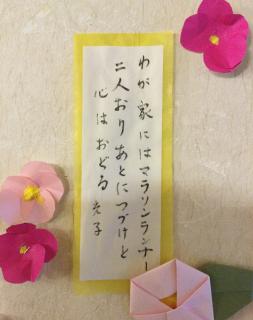 わが家にはマラソンランナー
二人おりあとにつづけと
心はおどる 光子